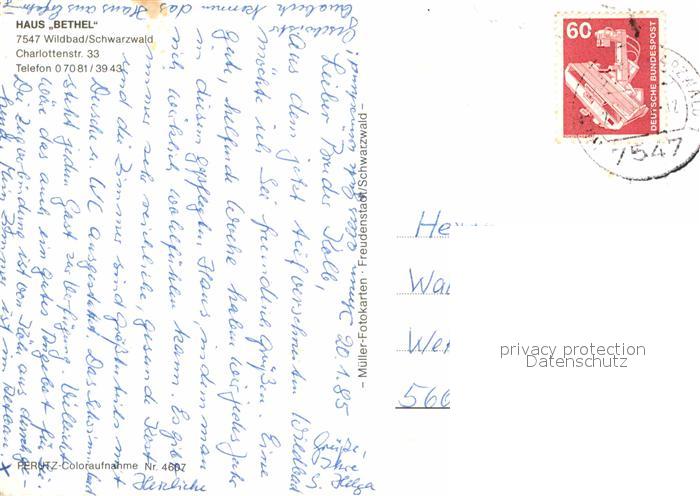 HAUS „BETHEL“
7547 Wildbad/Schwarzwald
Charlottenstr. 33
Telefon 0 70 81 / 39 43
PERUTZ-Coloraufnahme Nr. 4607
– Müller-Fotokarten – Freudenstadt/Schwarzwald –
20.1.85
Lieber Bruder Kolb,
Aus dem jetzt tief verschneiten Wildbad
möchte ich Sie freundlich grüßen. Eine
gute, helfende Woche haben wir jedes Jahr
in diesem gepflegten Haus, in dem man
sich wirklich wohlfühlen kann. Es gibt
immer sehr reichliche, gesunde Kost
und die Zimmer sind größtenteils mit
Duschen, WC ausgestattet. Das Schwimmbad
steht jedem Gast zur Verfügung. Vielleicht
wäre das auch ein gutes Angebot für Sie
Die Zugverbindung ist von Köln aus durchge-
Herzliche
Grüße,
Ihre
Helga
60
DEUTSCHE BUNDESPOST
7547
He
Wa
We
566
privacy protection
Datenschutz